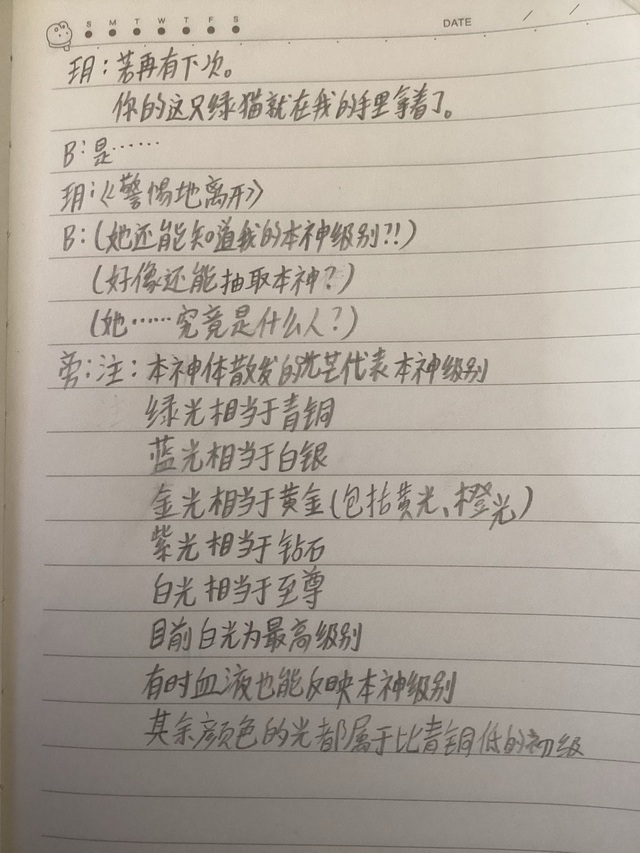 S M T W T F S
DATE / /
玥：若再有下次。
你的这只绿猫就在我的手里拿着了。
B：是……
玥：《警惕地离开》
B：（她还能知道我的本神级别？!!）
（好像还能抽取本神？）
（她……究竟是什么人？）
旁：注：本神体散发的光芒代表本神级别
绿光相当于青铜
蓝光相当于白银
金光相当于黄金（包括黄光、橙光）
紫光相当于钻石
白光相当于至尊
目前白光为最高级别
有时血液也能反映本神级别
其余颜色的光都属于比青铜低的初级